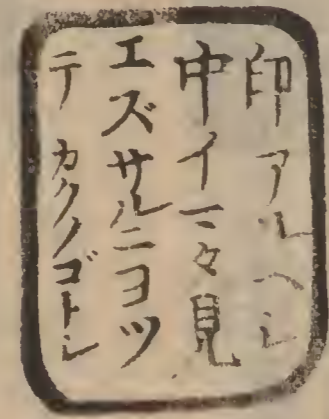 印アルヘシ
中イマ々見
エズサルニヨツ
テカクノゴトシ